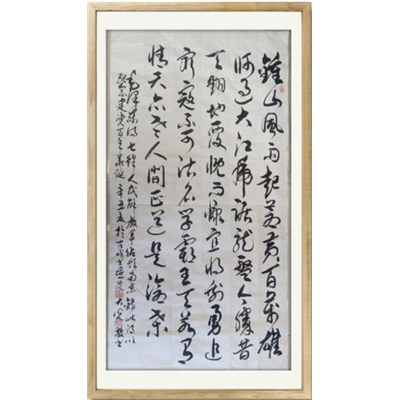 鍾山風雨起蒼黄百萬雄
師過大江虎踞龍盤今勝昔
天翻地覆慨而慷宜將剩勇追
窮寇不可沽名學霸王天若有
情天亦老人間正道是滄桑
毛澤東詩七律人民解放軍佔領南京錄此詩以
建党百年華誕辛丑夏於